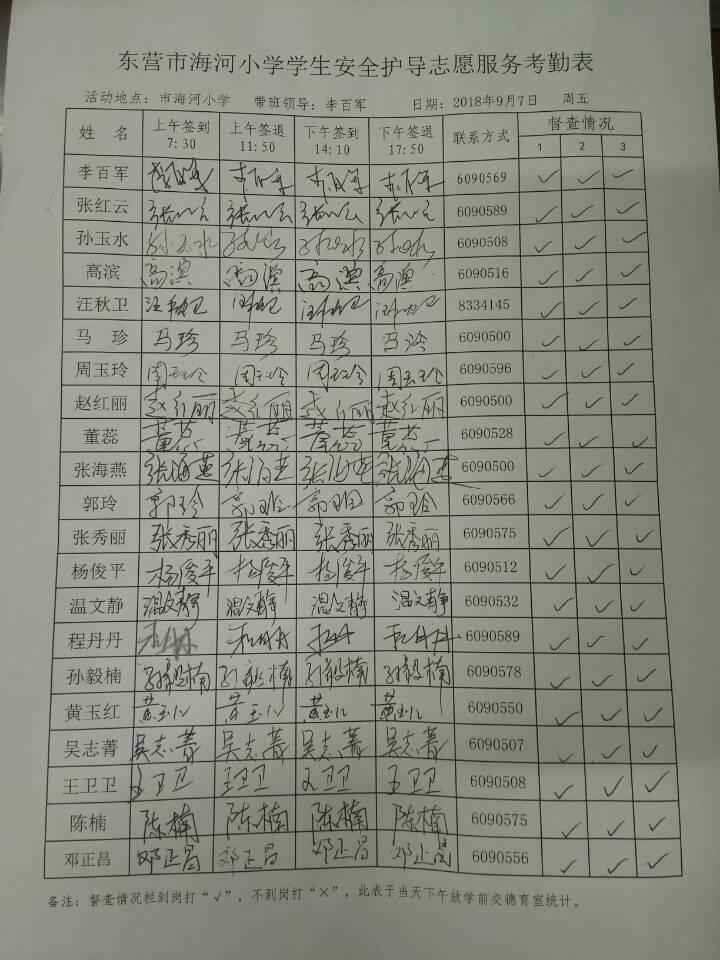 东营市海河小学学生安全护导志愿服务考勤表
活动地点：市海河小学 带班领导：李百军 日期：2018年9月7日 周五
姓 名 上午签到 7:30 上午签退 11:50 下午签到 14:10 下午签退 17:50 联系方式 督查情况
1 2 3
李百军 6090569 ✓ ✓ ✓
张红云 6090589 ✓ ✓ ✓
孙玉水 孙玉水 6090508 ✓ ✓ ✓
高滨 高滨 高滨 高滨 高滨 6090516 ✓ ✓ ✓
汪秋卫 汪秋卫 8334145 ✓ ✓ ✓
马 珍 马珍 马珍 马珍 马珍 6090500 ✓ ✓ ✓
周玉玲 周玉玲 周玉玲 周玉玲 周玉玲 6090596 ✓ ✓ ✓
赵红丽 赵红丽 赵红丽 赵红丽 赵红丽 6090500 ✓ ✓ ✓
董蕊 董蕊 董蕊 董蕊 董蕊 6090528 ✓ ✓ ✓
张海燕 张海燕 张海燕 张海燕 张海燕 6090500 ✓ ✓ ✓
郭玲 郭玲 郭玲 郭玲 郭玲 6090566 ✓ ✓ ✓
张秀丽 张秀丽 张秀丽 张秀丽 张秀丽 6090575 ✓ ✓ ✓
杨俊平 杨俊平 杨俊平 杨俊平 杨俊平 6090512 ✓ ✓ ✓
温文静 温文静 温文静 温文静 温文静 6090532 ✓ ✓ ✓
程丹丹 6090589 ✓ ✓ ✓
孙毅楠 孙毅楠 孙毅楠 孙毅楠 孙毅楠 6090578 ✓ ✓ ✓
黄玉红 黄玉红 黄玉红 黄玉红 黄玉红 6090550 ✓ ✓ ✓
吴志菁 吴志菁 吴志菁 吴志菁 吴志菁 6090507 ✓ ✓ ✓
王卫卫 王卫卫 王卫卫 王卫卫 王卫卫 6090508 ✓ ✓ ✓
陈楠 陈楠 陈楠 陈楠 陈楠 6090575 ✓ ✓ ✓
邓正昌 邓正昌 邓正昌 邓正昌 邓正昌 6090556 ✓ ✓ ✓
备注：督查情况栏到岗打“√”，不到岗打“×”，此表于当天下午放学前交德育室统计。